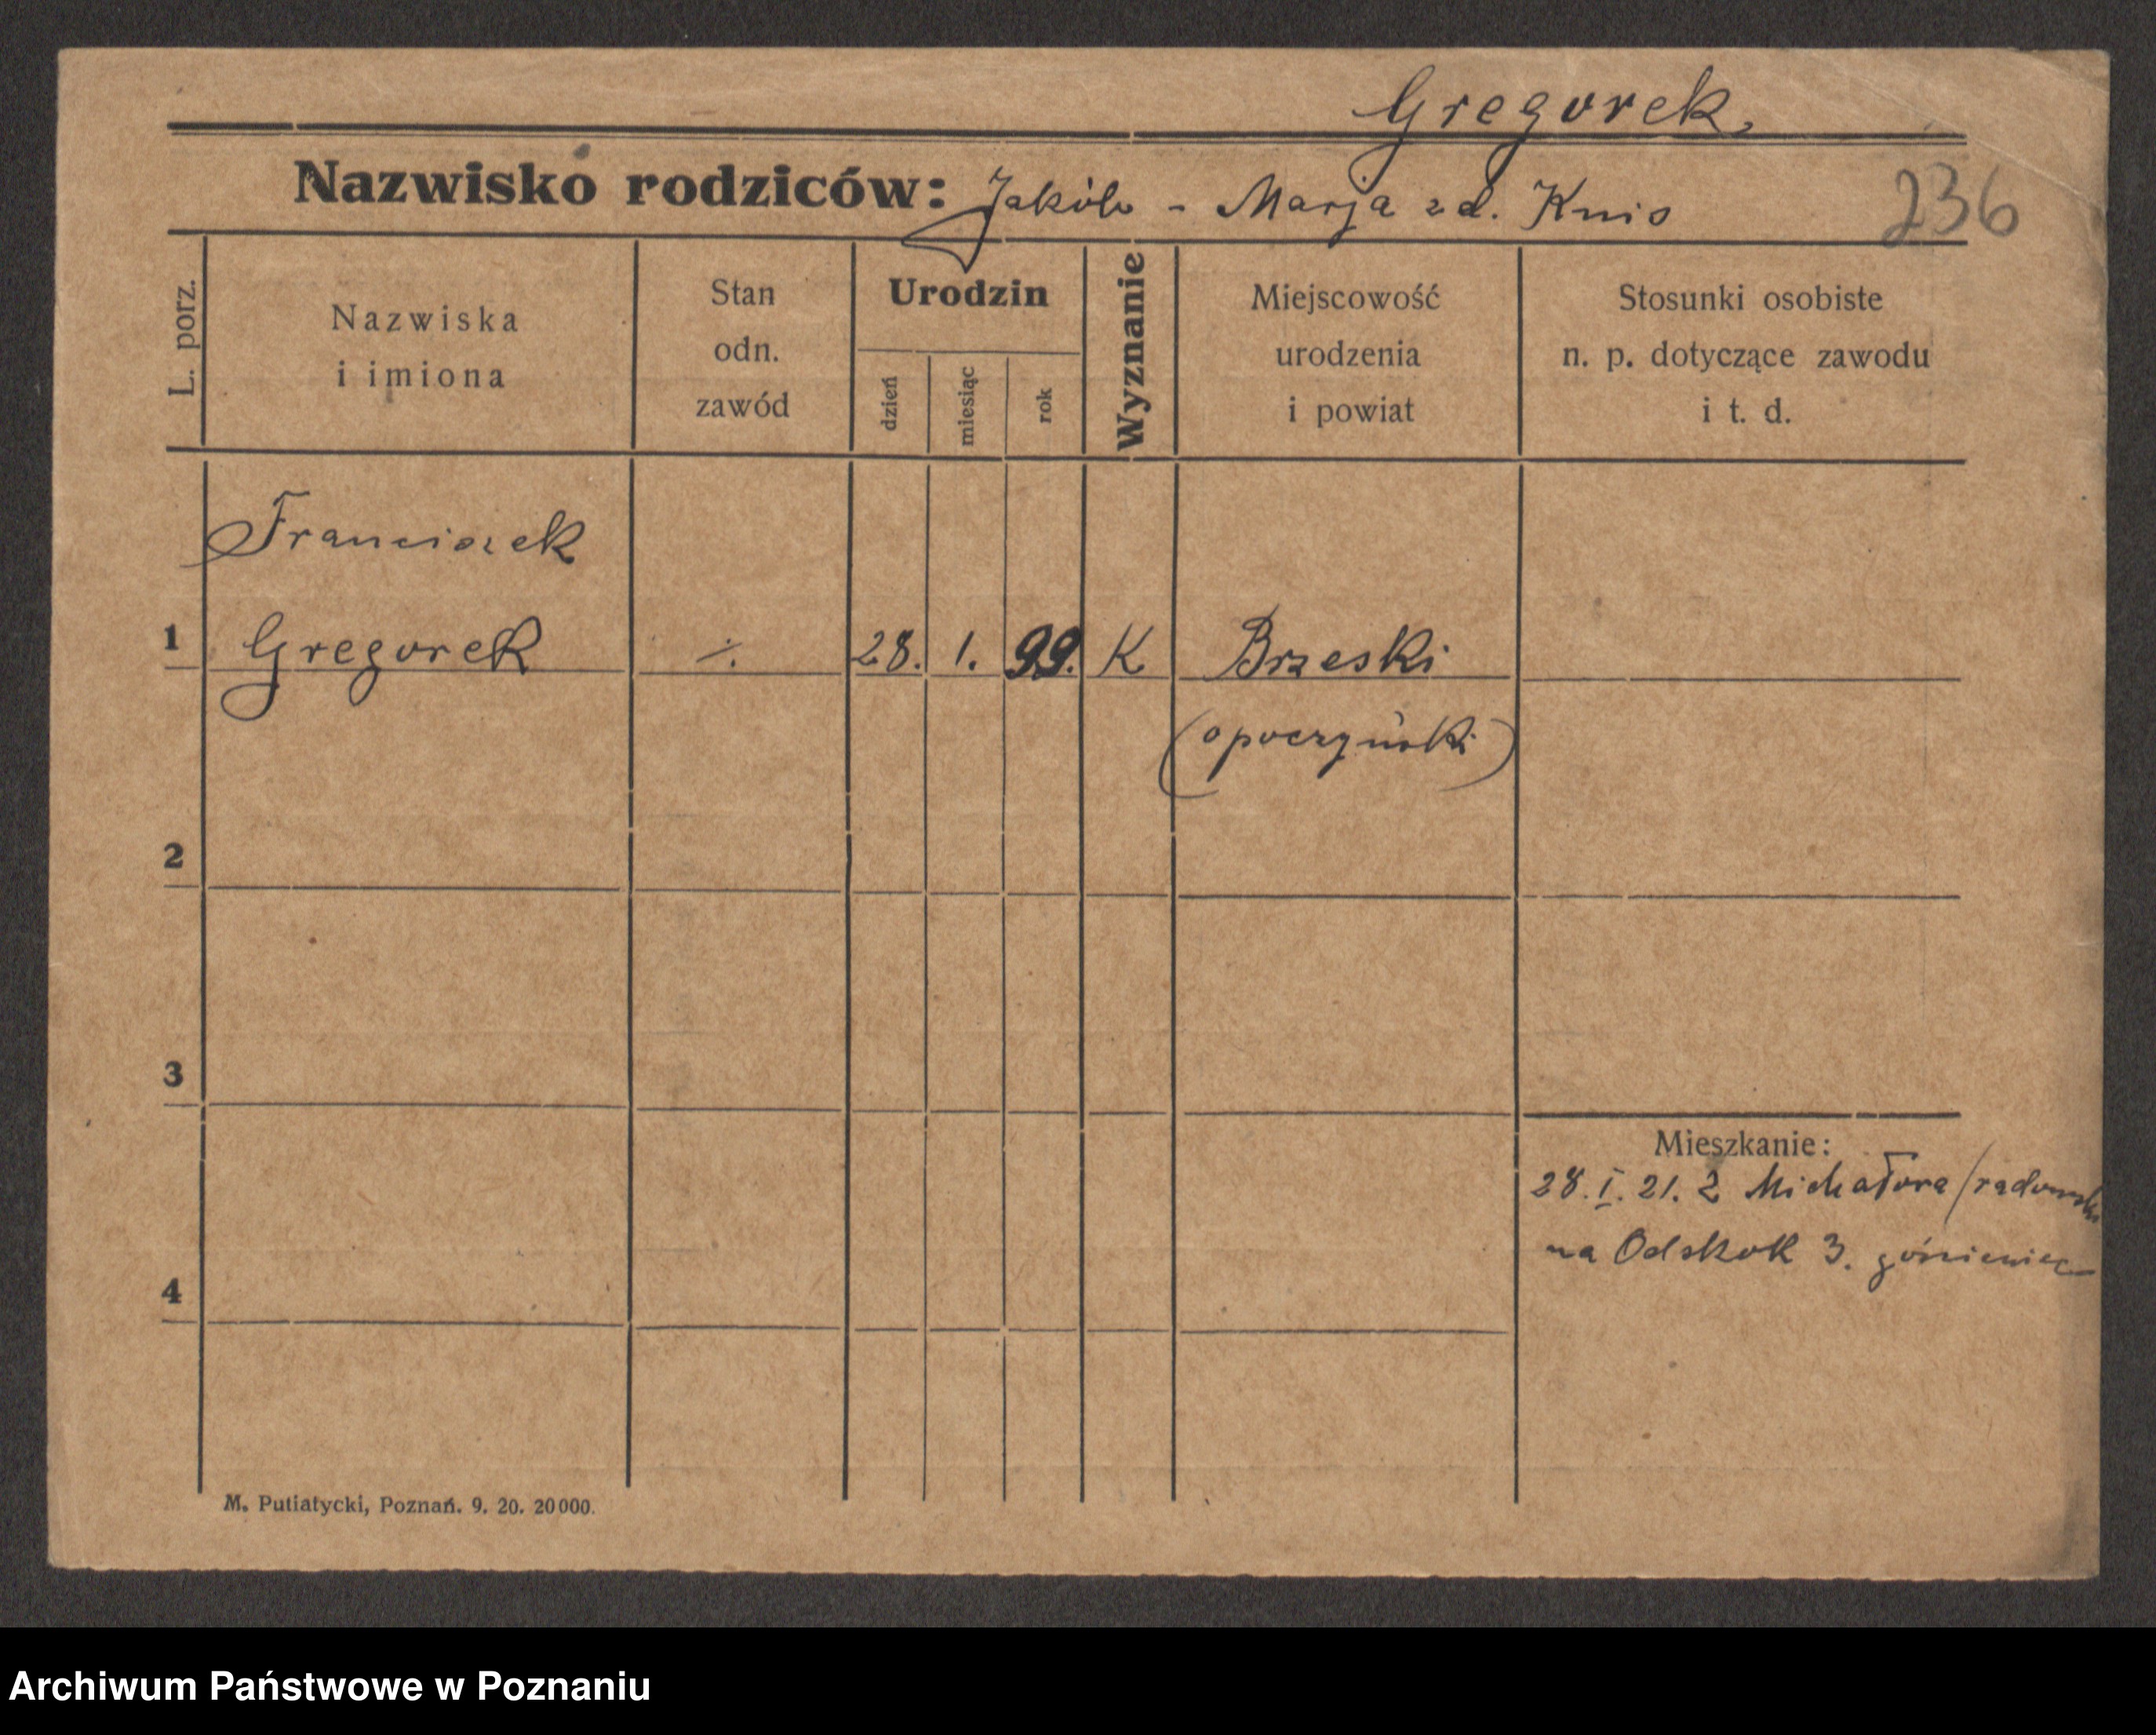 Gregorek
Nazwisko rodziców: Jakób - Marja zd. Knis
236
L. porz.
Nazwiska
i imiona
Stan
odn.
zawód
Urodzin
dzień
miesiąc
rok
Wyznanie
Miejscowość
urodzenia
i powiat
Stosunki osobiste
n. p. dotyczące zawodu
i t. d.
Franciszek
1 Gregorek ·/. 28. 1. 99. K Brzeski
(opoczyński)
2
3
Mieszkanie:
28. I. 21. z
na Odskok 3.
4
M. Putiatycki, Poznań. 9. 20. 20000.
Archiwum Państwowe w Poznaniu